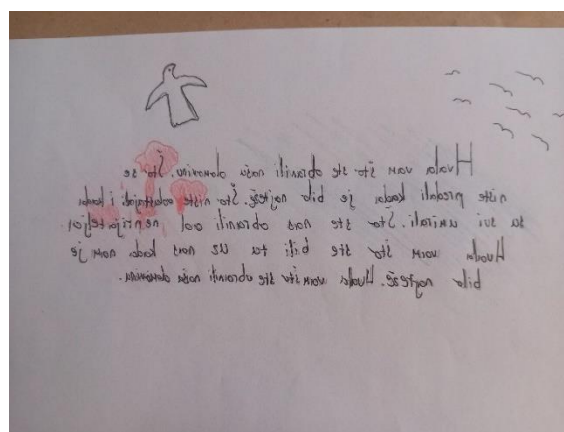 Hvala vam što ste obranili našu domovinu. Što se
niste predali kada je bilo najteže. Što niste odustajali i kada
su svi umirali. Što ste nas obranili od neprijatelja.
Hvala vam što ste bili tu uz nas kada nam je
bilo najteže. Hvala vam što ste obranili našu domovinu.